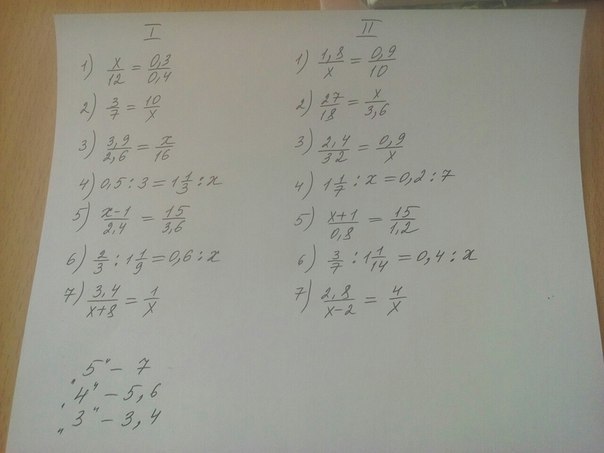 I
1) x/12 = 0,3/0,4
2) 3/7 = 10/x
3) 3,9/2,6 = x/16
4) 0,5 : 3 = 1 1/3 : x
5) x-1/2,4 = 15/3,6
6) 2/3 : 1 1/9 = 0,6 : x
7) 3,4/x+8 = 1/x
„5" – 7
„4" – 5, 6
„3" – 3, 4
II
1) 1,8/x = 0,9/10
2) 27/18 = x/3,6
3) 2,4/32 = 0,9/x
4) 1 1/7 : x = 0,2 : 7
5) x+1/0,8 = 15/1,2
6) 3/7 : 1 1/14 = 0,4 : x
7) 2,8/x-2 = 4/x